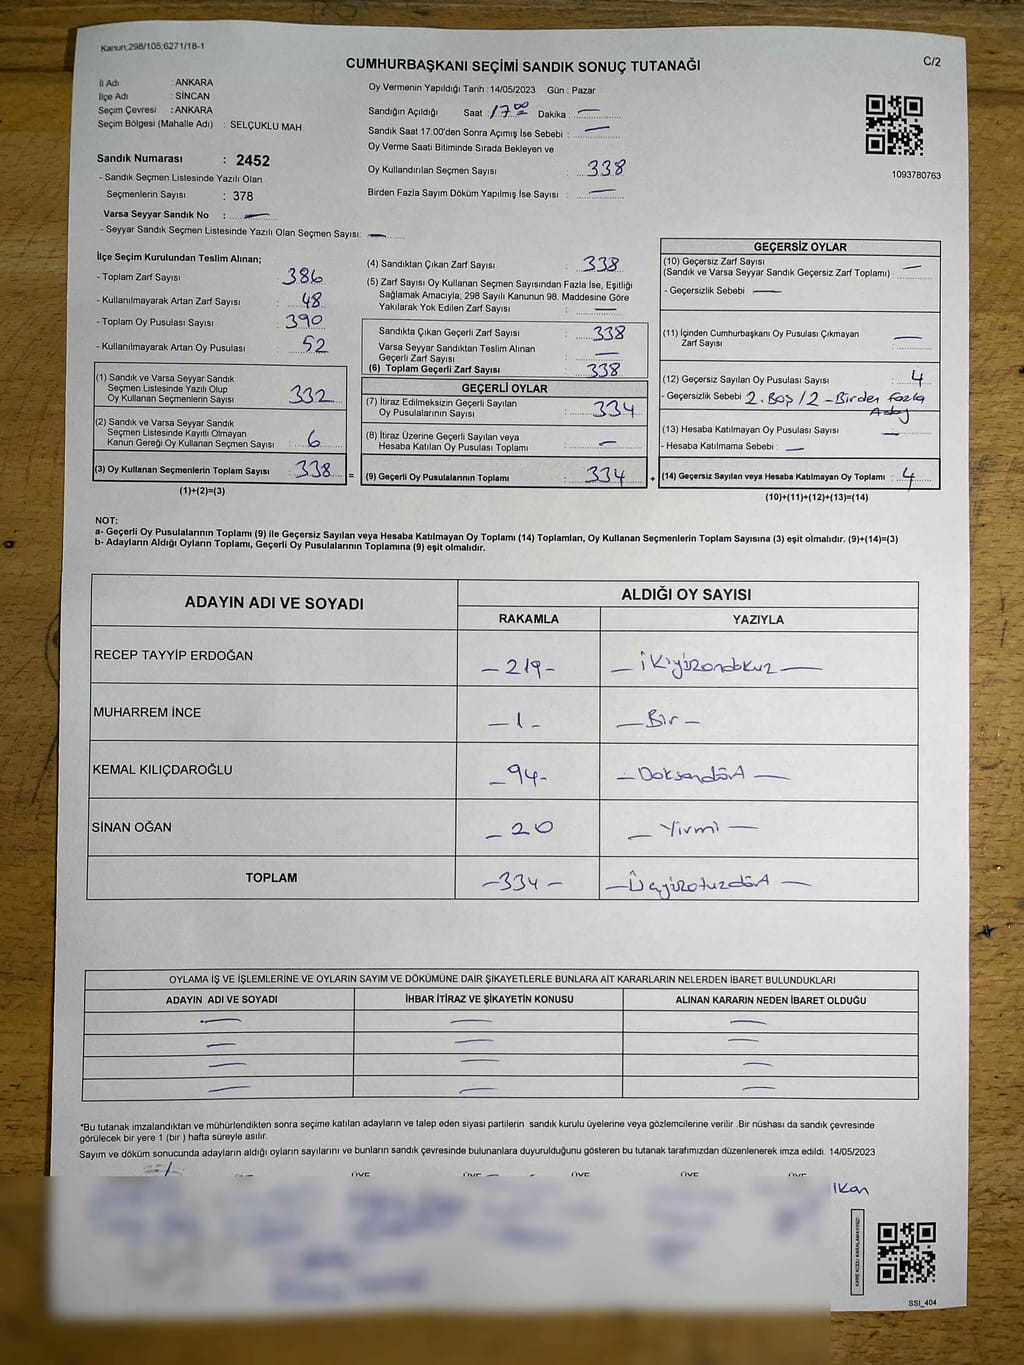 Kanun;298/105,6271/18-1
C/2
CUMHURBAŞKANI SEÇİMİ SANDIK SONUÇ TUTANAĞI
İl Adı : ANKARA
İlçe Adı : SİNCAN
Seçim Çevresi : ANKARA
Seçim Bölgesi (Mahalle Adı) : SELÇUKLU MAH.
Sandık Numarası : 2452
- Sandık Seçmen Listesinde Yazılı Olan
Seçmenlerin Sayısı : 378
Varsa Seyyar Sandık No : —
- Seyyar Sandık Seçmen Listesinde Yazılı Olan Seçmen Sayısı: —
Oy Vermenin Yapıldığı Tarih : 14/05/2023 Gün : Pazar
Sandığın Açıldığı Saat : 17.00 Dakika : —
Sandık Saat 17:00'den Sonra Açımış İse Sebebi : —
Oy Verme Saati Bitiminde Sırada Bekleyen ve
Oy Kullandırılan Seçmen Sayısı : 338
Birden Fazla Sayım Döküm Yapılmış İse Sayısı : —
1093780763
İlçe Seçim Kurulundan Teslim Alınan;
- Toplam Zarf Sayısı : 386
- Kullanılmayarak Artan Zarf Sayısı : 48
- Toplam Oy Pusulası Sayısı : 390
- Kullanılmayarak Artan Oy Pusulası : 52
(1) Sandık ve Varsa Seyyar Sandık
Seçmen Listesinde Yazılı Olup
Oy Kullanan Seçmenlerin Sayısı : 332
(2) Sandık ve Varsa Seyyar Sandık
Seçmen Listesinde Kayıtlı Olmayan
Kanun Gereği Oy Kullanan Seçmen Sayısı : 6
(3) Oy Kullanan Seçmenlerin Toplam Sayısı : 338 =
(1)+(2)=(3)
(4) Sandıktan Çıkan Zarf Sayısı : 338
(5) Zarf Sayısı Oy Kullanan Seçmen Sayısından Fazla İse, Eşitliği
Sağlamak Amacıyla; 298 Sayılı Kanunun 98. Maddesine Göre
Yakılarak Yok Edilen Zarf Sayısı : —
Sandıkta Çıkan Geçerli Zarf Sayısı : 338
Varsa Seyyar Sandıktan Teslim Alınan
Geçerli Zarf Sayısı : —
(6) Toplam Geçerli Zarf Sayısı : 338
GEÇERLİ OYLAR
(7) İtiraz Edilmeksizin Geçerli Sayılan
Oy Pusulalarının Sayısı : 334
(8) İtiraz Üzerine Geçerli Sayılan veya
Hesaba Katılan Oy Pusulası Toplamı : —
(9) Geçerli Oy Pusulalarının Toplamı : 334 +
GEÇERSİZ OYLAR
(10) Geçersiz Zarf Sayısı
(Sandık ve Varsa Seyyar Sandık Geçersiz Zarf Toplamı) : —
- Geçersizlik Sebebi : —
(11) İçinden Cumhurbaşkanı Oy Pusulası Çıkmayan
Zarf Sayısı : —
(12) Geçersiz Sayılan Oy Pusulası Sayısı : 4
- Geçersizlik Sebebi : 2. Boş / 2 - Birden Fazla
Aday
(13) Hesaba Katılmayan Oy Pusulası Sayısı : —
- Hesaba Katılmama Sebebi : —
(14) Geçersiz Sayılan veya Hesaba Katılmayan Oy Toplamı : 4
(10)+(11)+(12)+(13)=(14)
NOT:
a- Geçerli Oy Pusulalarının Toplamı (9) ile Geçersiz Sayılan veya Hesaba Katılmayan Oy Toplamı (14) Toplamları, Oy Kullanan Seçmenlerin Toplam Sayısına (3) eşit olmalıdır. (9)+(14)=(3)
b- Adayların Aldığı Oyların Toplamı, Geçerli Oy Pusulalarının Toplamına (9) eşit olmalıdır.
ADAYIN ADI VE SOYADI ALDIĞI OY SAYISI
RAKAMLA YAZIYLA
RECEP TAYYİP ERDOĞAN — 219 — — İkiyüzondokuz —
MUHARREM İNCE — 1 — — Bir —
KEMAL KILIÇDAROĞLU — 94 — — Doksandört —
SİNAN OĞAN — 20 — Yirmi —
TOPLAM — 334 — — Üçyüzotuzdört —
OYLAMA İŞ VE İŞLEMLERİNE VE OYLARIN SAYIM VE DÖKÜMÜNE DAİR ŞİKAYETLERLE BUNLARA AİT KARARLARIN NELERDEN İBARET BULUNDUKLARI
ADAYIN ADI VE SOYADI İHBAR İTİRAZ VE ŞİKAYETİN KONUSU ALINAN KARARIN NEDEN İBARET OLDUĞU
— — —
— — —
— — —
— — —
*Bu tutanak imzalandıktan ve mühürlendikten sonra seçime katılan adayların ve talep eden siyasi partilerin sandık kurulu üyelerine veya gözlemcilerine verilir .Bir nüshası da sandık çevresinde
görülecek bir yere 1 (bir ) hafta süreyle asılır.
Sayım ve döküm sonucunda adayların aldığı oyların sayılarını ve bunların sandık çevresinde bulunanlara duyurulduğunu gösteren bu tutanak tarafımızdan düzenlenerek imza edildi. 14/05/2023
ÜYE ÜYE ÜYE ÜYE ÜYE ÜYE
KARE KODU KARALAMAYINIZ!
SSİ_404